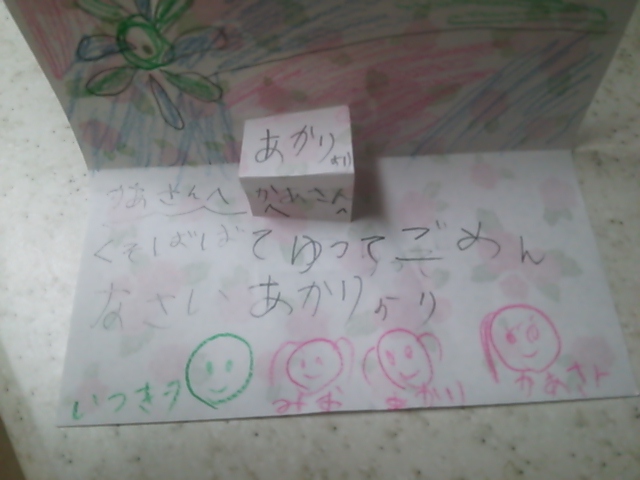 あかり
より
かあさんへ
かあさん
へ へ
くそばばてゆってごめん
なさい あかりより
いつき
みお
あかり
かあさん